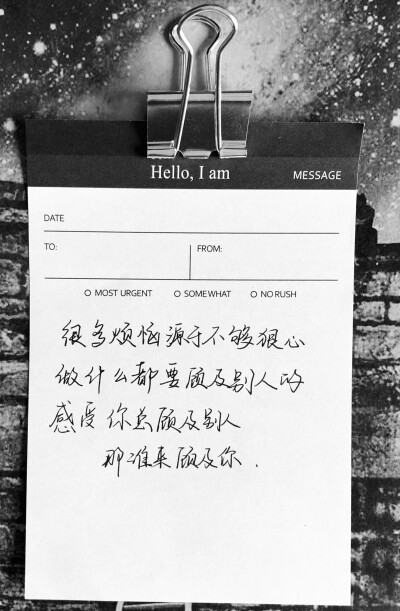 Hello, I am
MESSAGE
DATE
TO:
FROM:
MOST URGENT
SOMEWHAT
NO RUSH
很多烦恼源于不够狠心
做什么都要顾及别人的
感受你总顾及别人
那谁来顾及你.